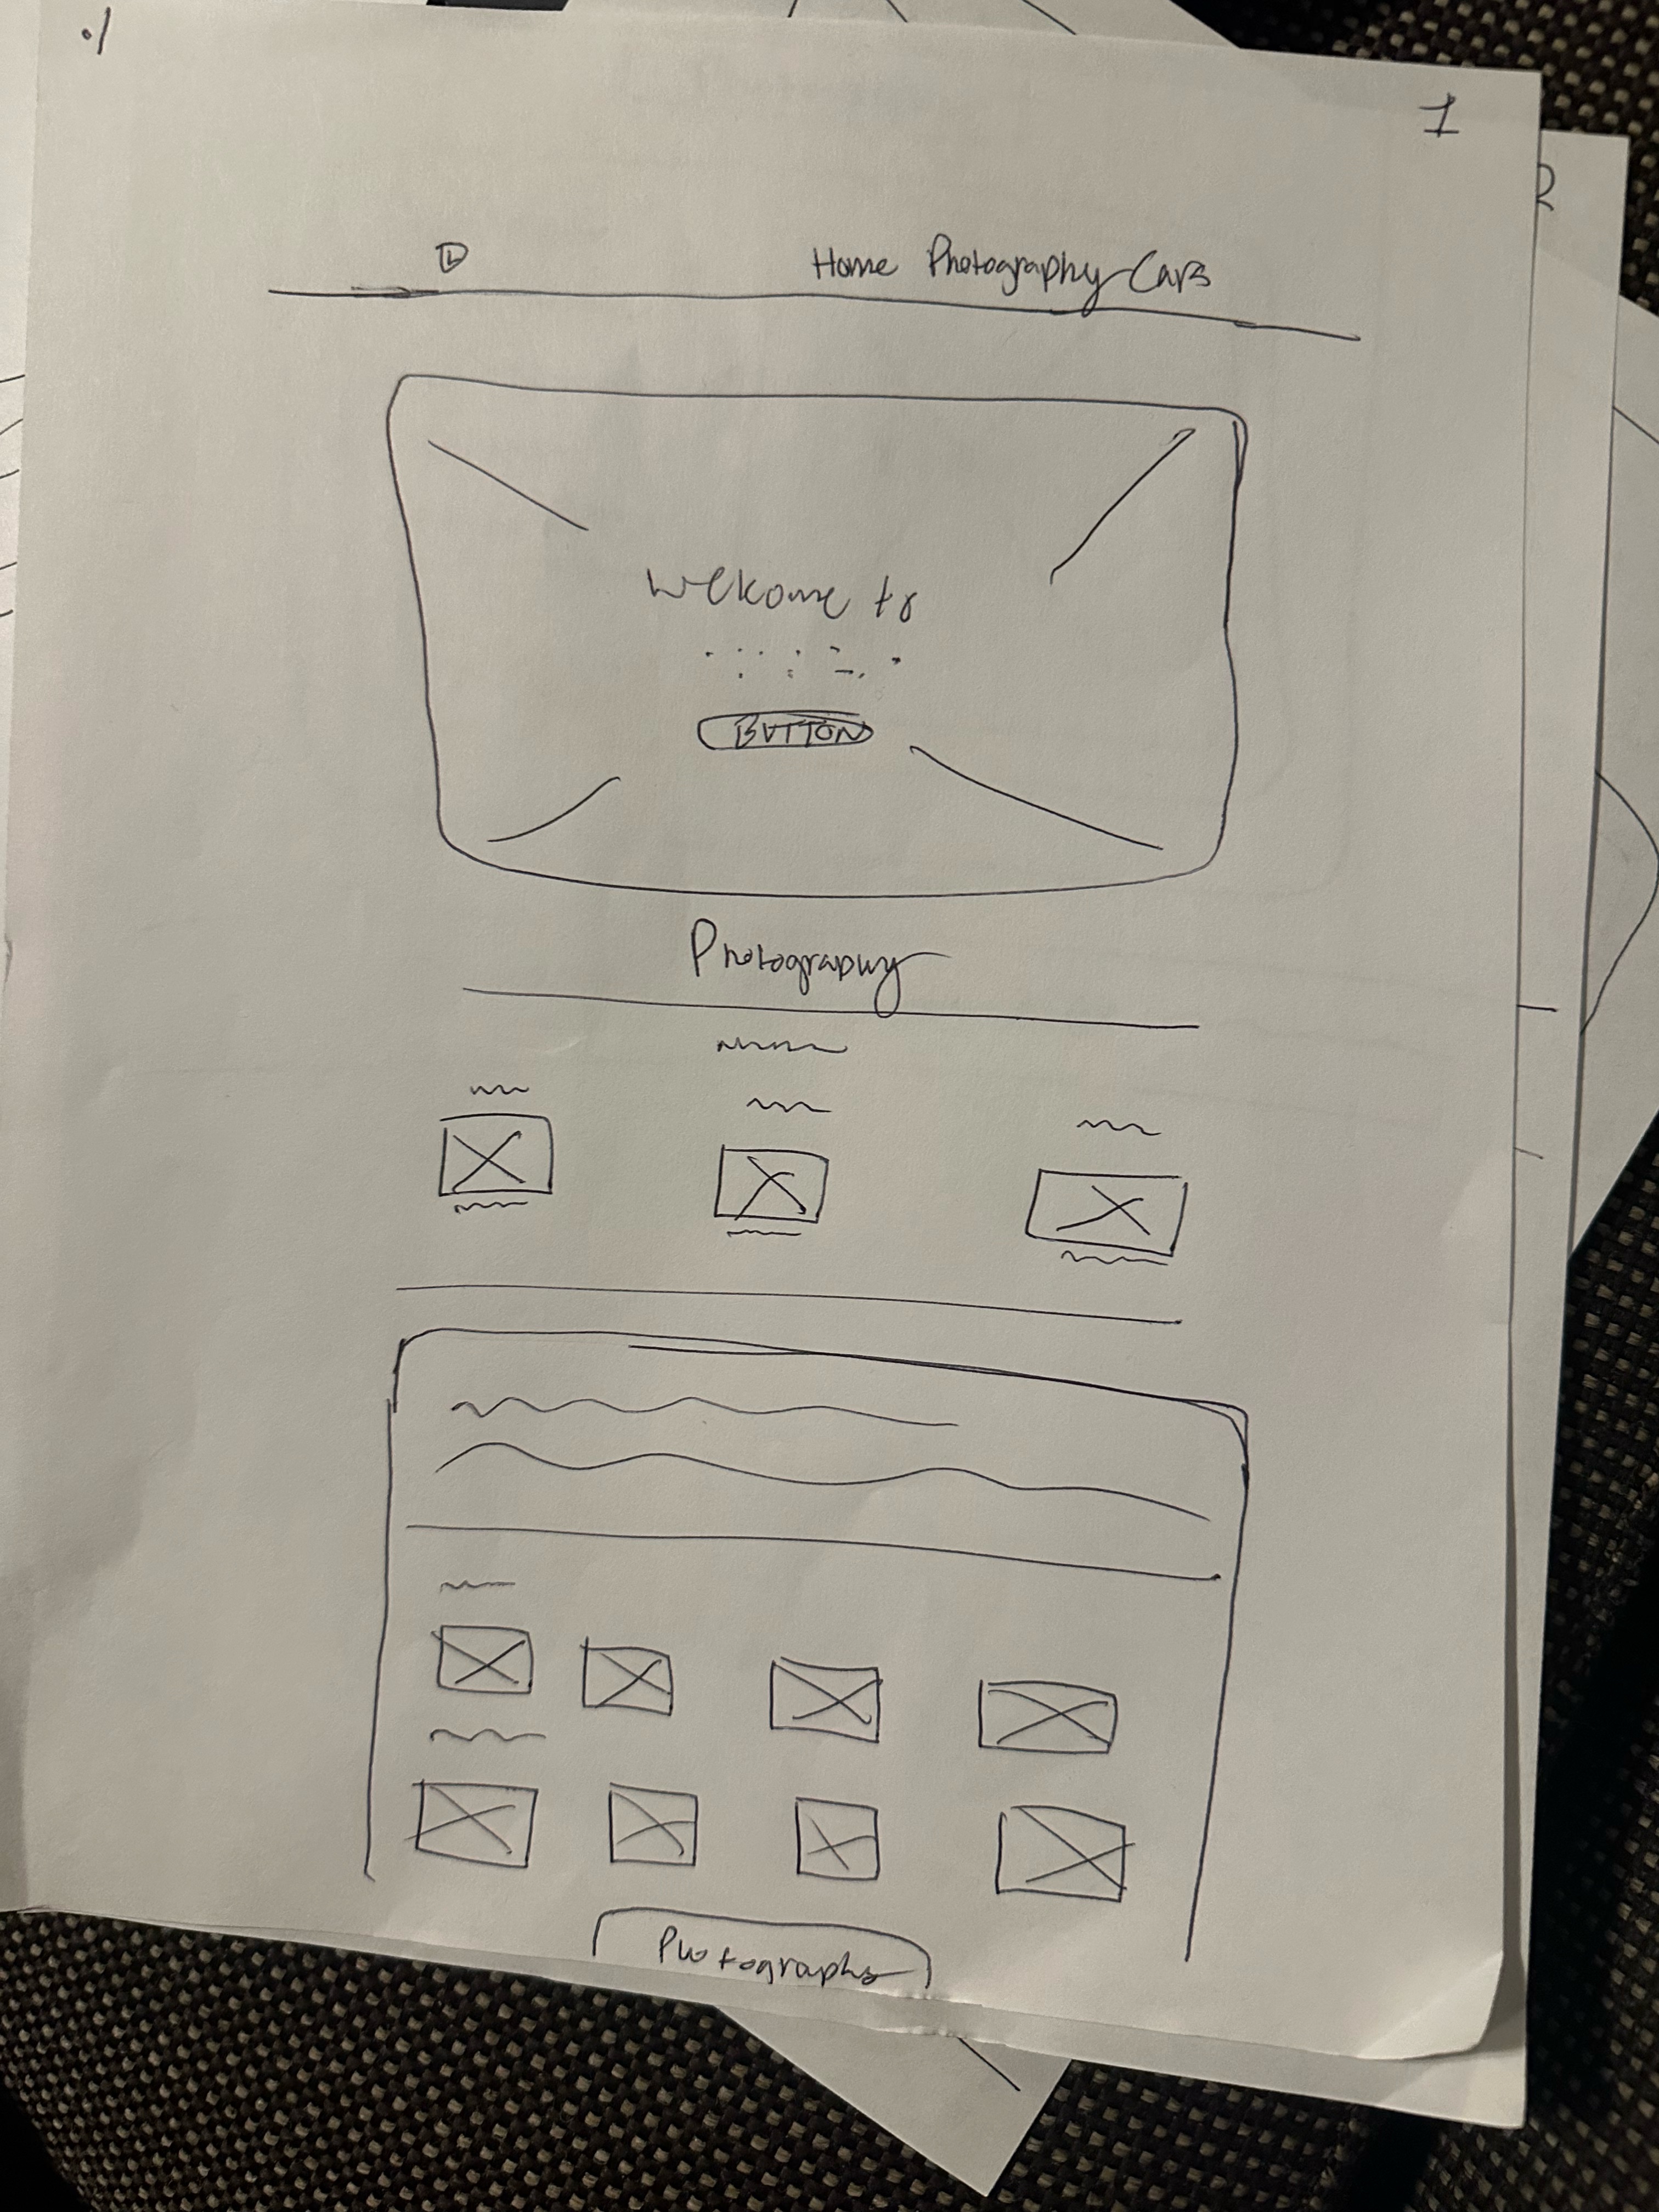 1
Home Photography Cars
Welcome to
BUTTON
Photography
Photographs